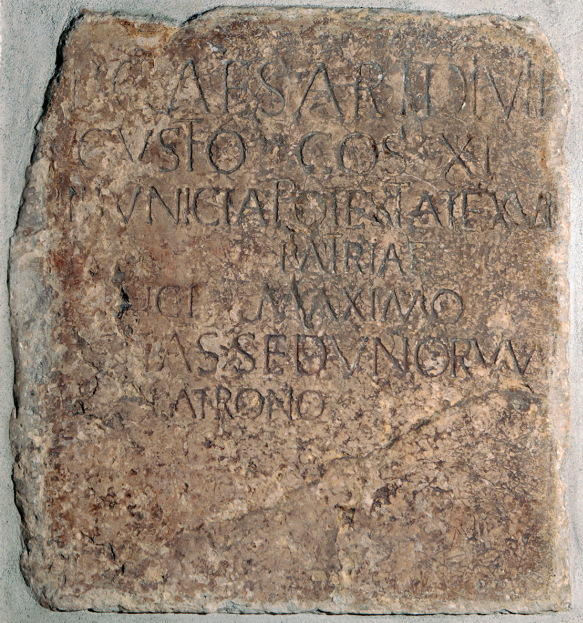 CAESARI DIVI F
GVSTO COS XI
BVNICIA POTESTATE XVI
PATRIAE
FICI MAXIMO
TAS SEDVNORVM
PATRONO